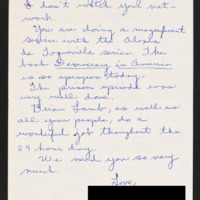 I don't watch your net-
work
You are doing a magnificent
service with the Alexis
de Toqueville series. The
book Democracy in America
is so apropos today.
The prison episode was
very well done.
Brian Lamb, as well as
all your people, do a
wonderful job thoughout the
24 hour day.
We need you so very
much.
Love,